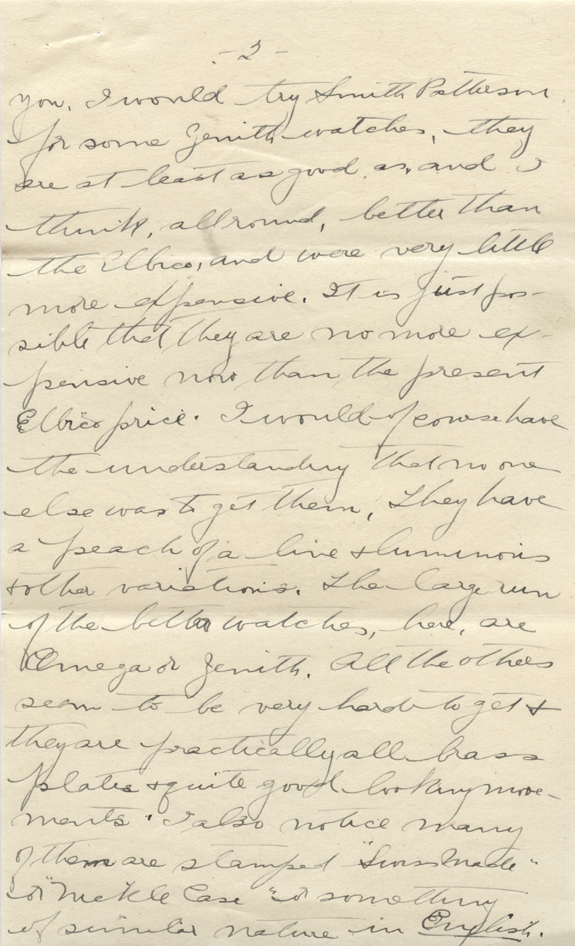 - 2 -
you. I would try Smith Patterson
for some Zenith watches, they
are at least as good as, and I
think, all round, better than
the Elbico, and were very little
more expensive. It is just pos-
sible that they are no more ex-
pensive now than the present
Elbico price. I would of course have
the understanding that no one
else was to get them. They have
a peach of a line + luminous
+ other variations. The large run
of the better watches, here, are
Omega or Zenith. All the others
seem to be very hard to get +
they are practically all brass
plates + quite good looking move-
ments. I also notice many
of them are stamped "Swiss Made"
or "Nickle Case" or something
of similar nature in English.